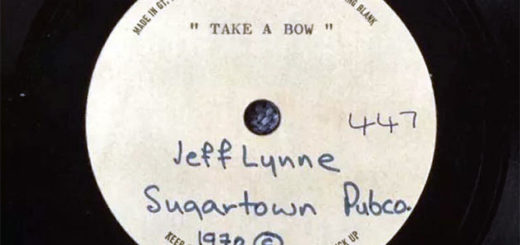 MADE IN GT.
ING BLANK
" TAKE A BOW "
447
Jeff Lynne
Sugartown Pubco.
1970 ©
KEEP
CK UP